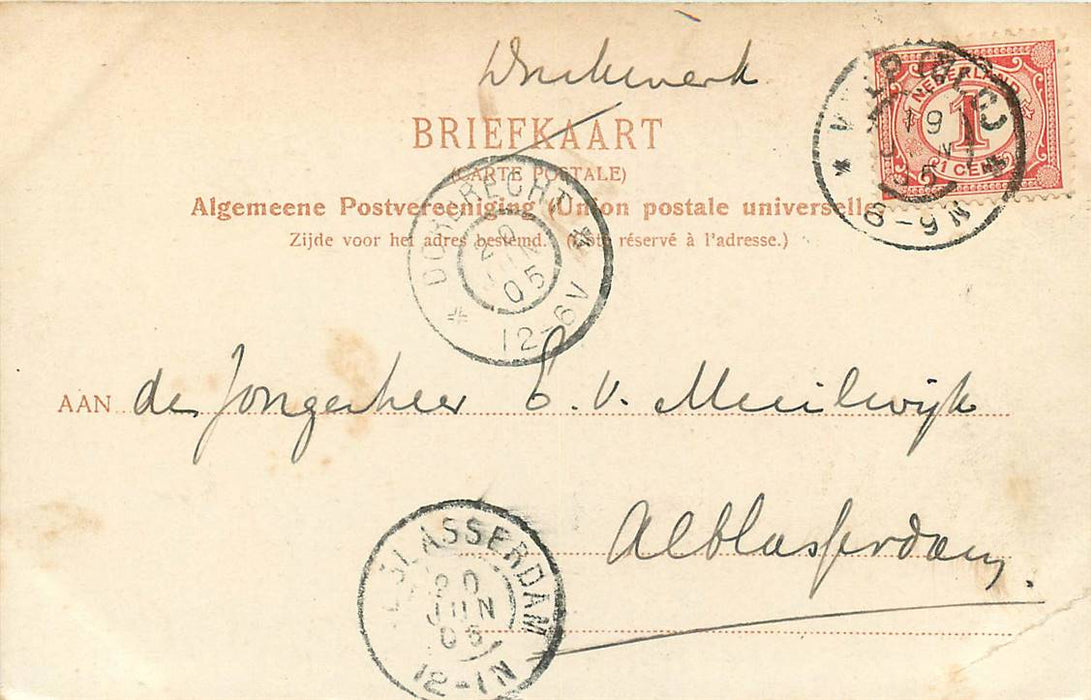 Drukwerk
BRIEFKAART
(CARTE POSTALE)
Algemeene Postvereeniging (Union postale universelle
Zijde voor het adres bestemd. (Côté réservé à l'adresse.)
NEDERLAND
1
(1 CENT)
19
8-9N
DORDRECHT
20
JUN
05
12-6V
AAN de Jongeheer E. v. Muilwijk
Alblasserdam.
ALBLASSERDAM
20
JUN
05
12-1N